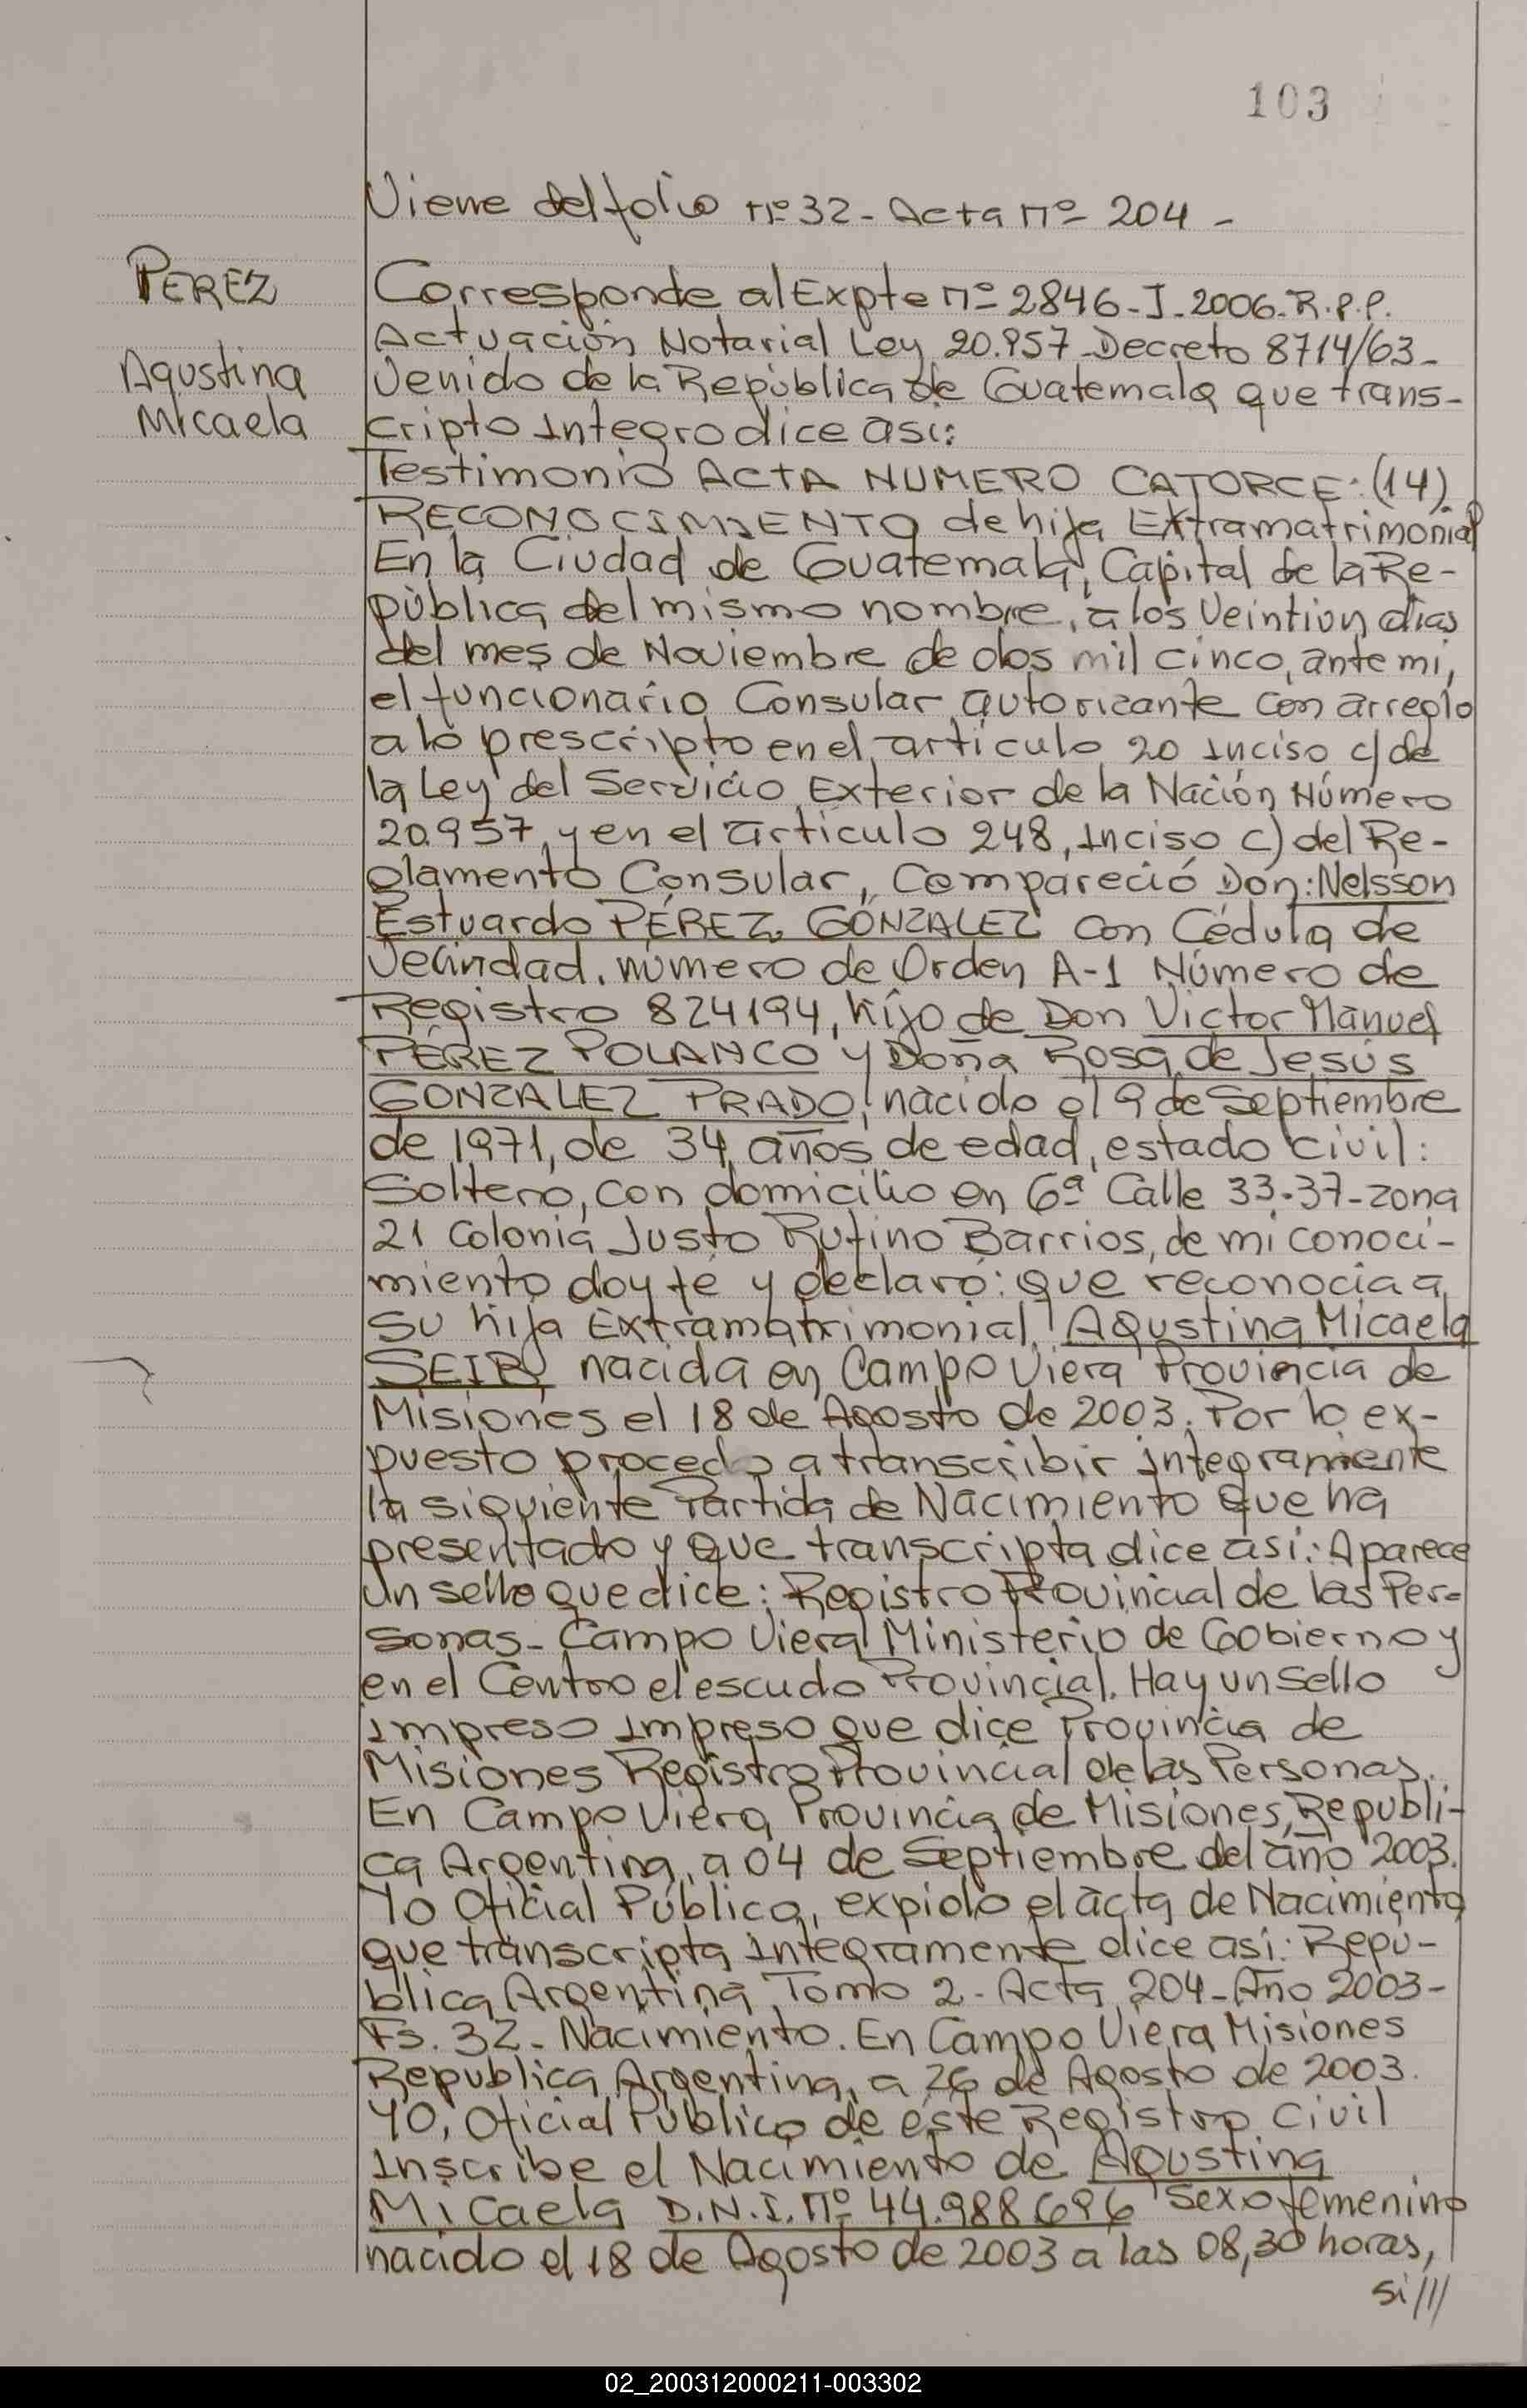 103
Viene del folio nº 32 - Acta nº 204 -
PEREZ
Agustina
Micaela
Corresponde al Expte nº 2846-J-2006-R.P.P.
Actuación Notarial Ley 20.957 - Decreto 8714/63 -
Venido de la República de Guatemala que trans-
cripto integro dice asi:
Testimonio ACTA NUMERO CATORCE: (14)
RECONOCIMIENTO de hija Extramatrimonial
En la Ciudad de Guatemala, Capital de la Re-
pública del mismo nombre, a los Veintiun dias
del mes de Noviembre de dos mil cinco, ante mi,
el funcionario Consular autorizante con arreglo
a lo prescripto en el articulo 20 inciso c) de
la Ley del Servicio Exterior de la Nación Número
20.957, y en el articulo 248, inciso c) del Re-
glamento Consular, Compareció Don: Nelsson
Estuardo PÉREZ GONZALEZ con Cédula de
Vecindad, número de Orden A-1 Número de
Registro 824194, hijo de Don Victor Manuel
PÉREZ POLANCO y Doña Rosa de Jesús
GONZALEZ PRADO, nacido el 9 de Septiembre
de 1971, de 34 años de edad, estado civil:
Soltero, con domicilio en 6ª Calle 33-37-zona
21 Colonia Justo Rufino Barrios, de mi conoci-
miento doy fé y declaró: que reconocia a
su hija Extramatrimonial, Agustina Micaela
SEIB, nacida en Campo Viera Provincia de
Misiones el 18 de Agosto de 2003. Por lo ex-
puesto procedo a transcribir integramente
la siguiente Partida de Nacimiento que ha
presentado y que transcripta dice asi: Aparece
un sello que dice: Registro Provincial de las Per-
sonas - Campo Viera Ministerio de Gobierno y
en el Centro el escudo Provincial. Hay un sello
impreso impreso que dice Provincia de
Misiones Registro Provincial de las Personas.
En Campo Viera, Provincia de Misiones, Republi-
ca Argentina, a 04 de Septiembre del año 2003.
Yo Oficial Público, expido el acta de Nacimiento
que transcripta integramente dice asi: Repu-
blica Argentina Tomo 2 - Acta 204 - Año 2003 -
Fs. 32 - Nacimiento. En Campo Viera Misiones
Republica Argentina, a 26 de Agosto de 2003.
YO, Oficial Público de éste Registro Civil
Inscribe el Nacimiento de Agustina
Micaela D.N.I. Nº 44.988.696 Sexo femenino
nacido el 18 de Agosto de 2003 a las 08,30 horas,
si///
02_200312000211-003302